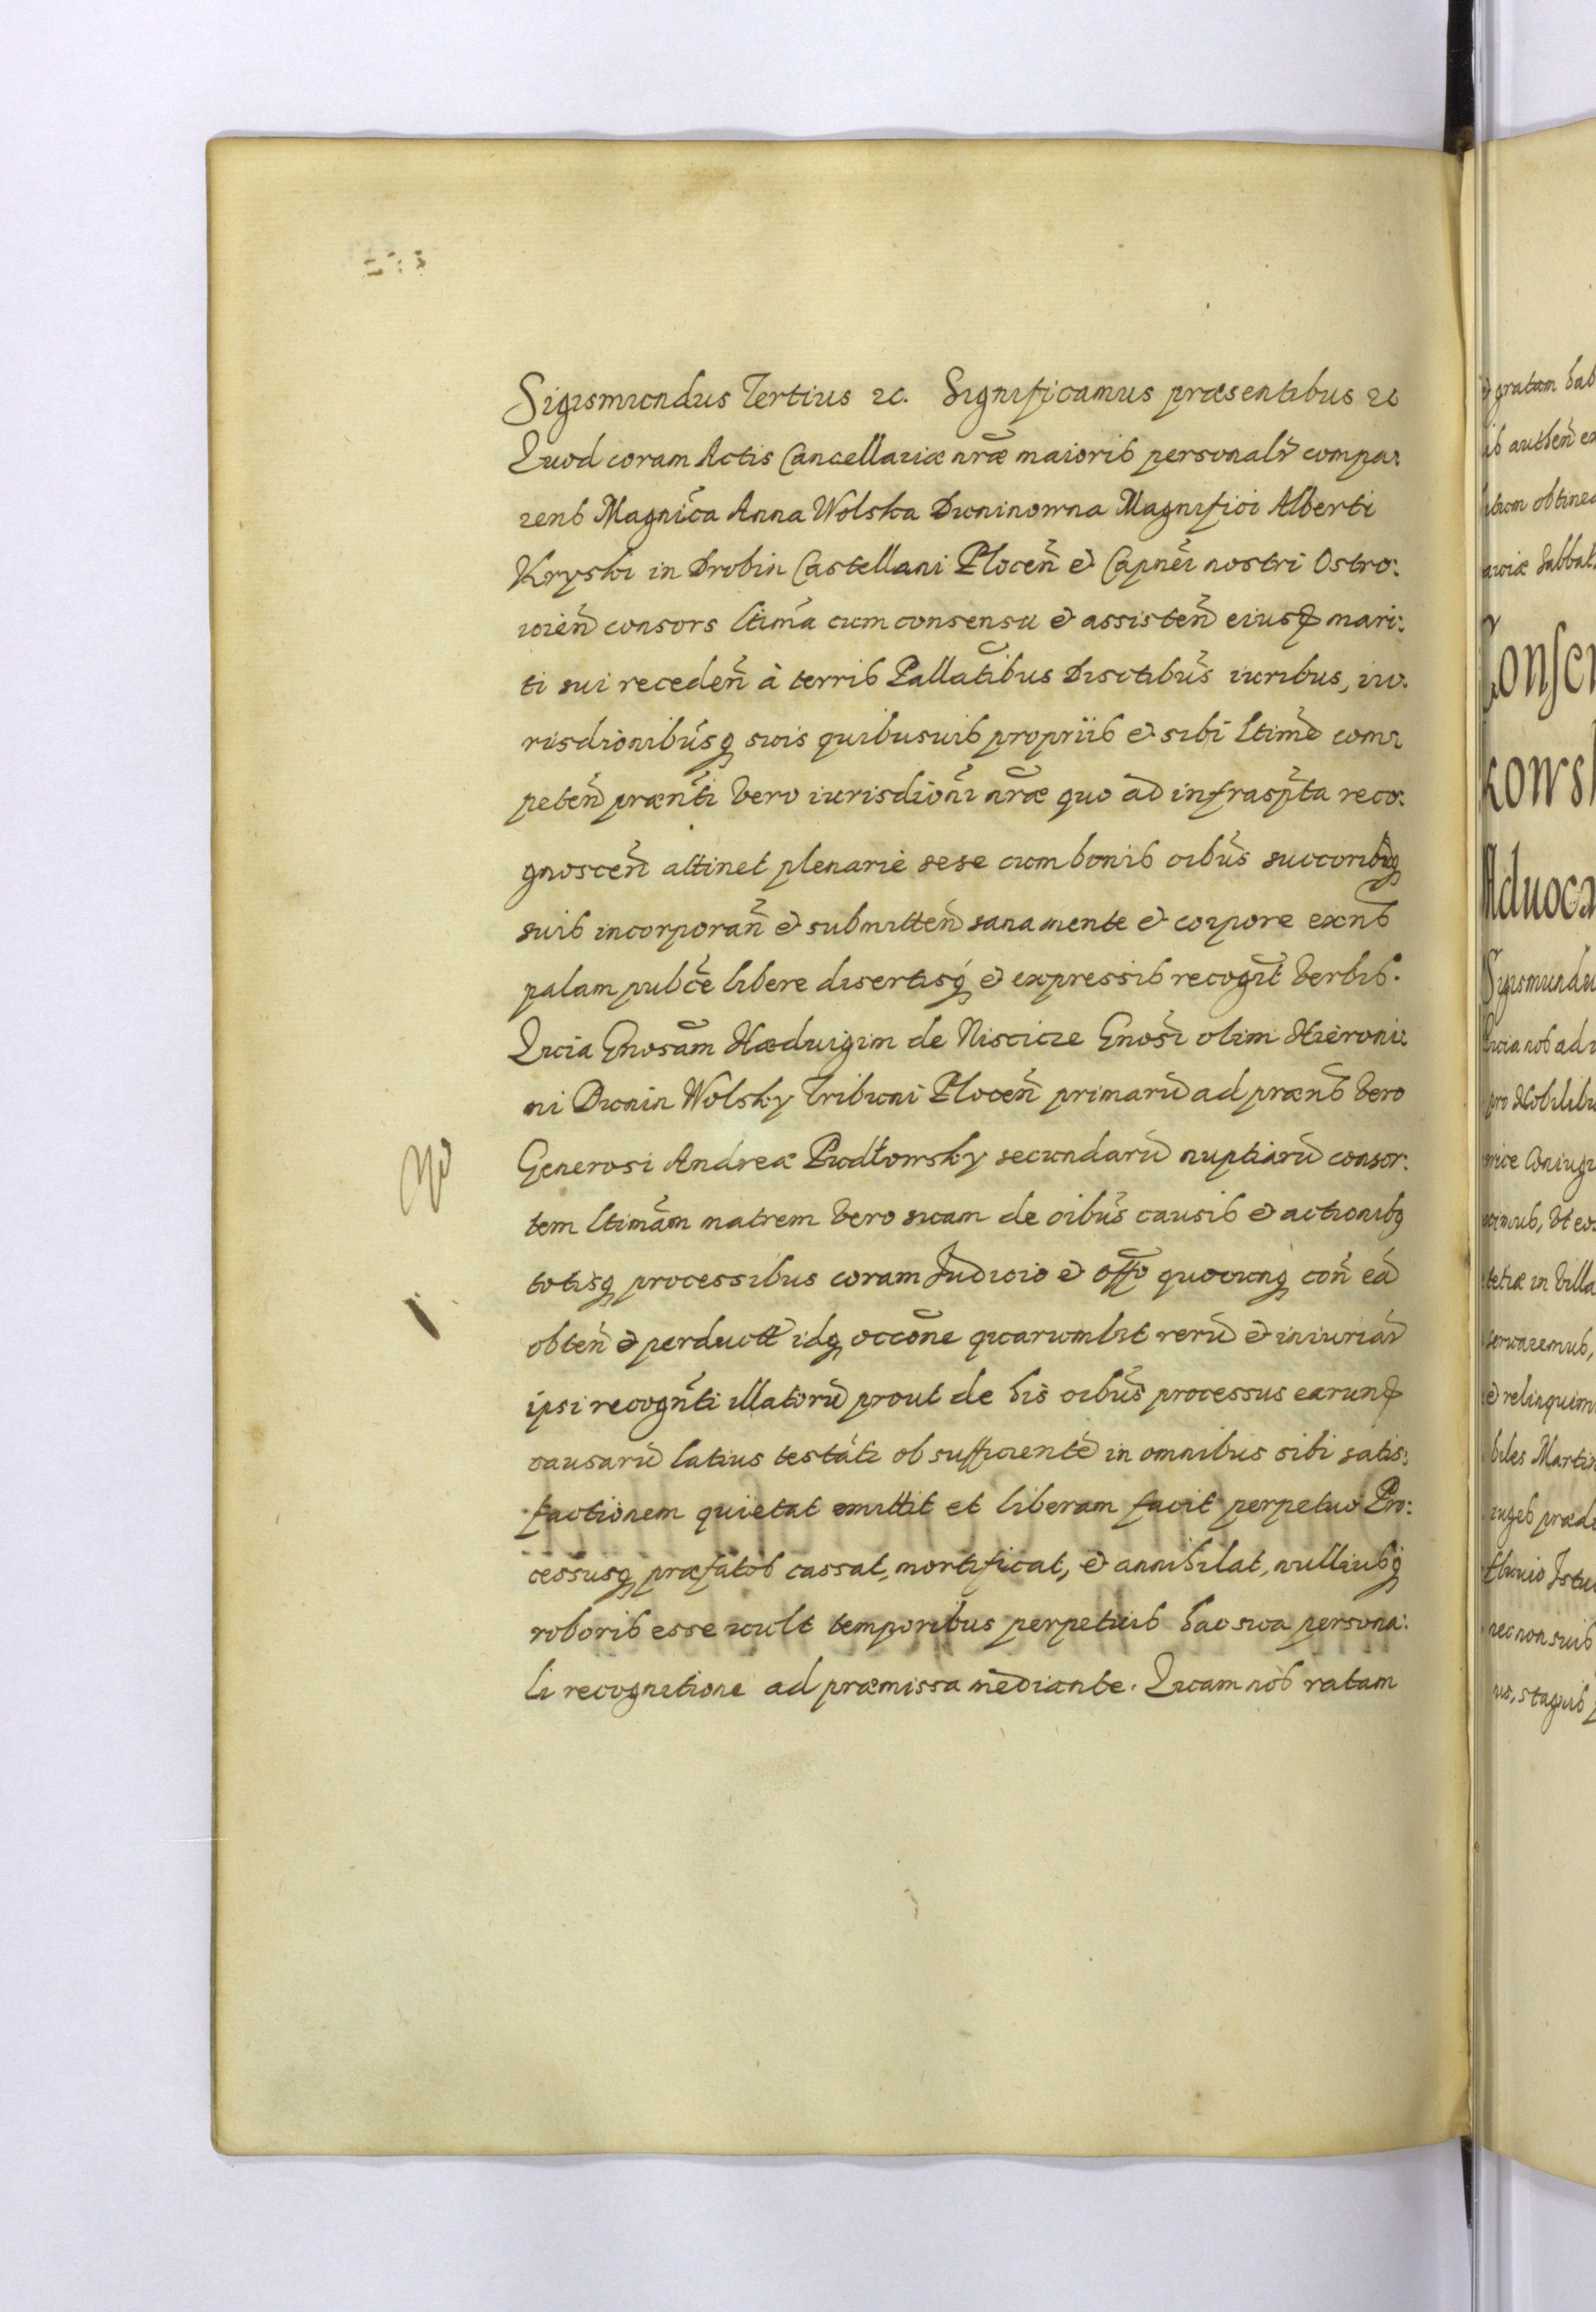 Sigismundus Tertius etc. Significamus præsentibus etc
Quod coram Actis Cancellariæ nræ maioris personalr compa:
rens Magnica Anna Wolska Duninowna Magnifici Alberti
Kryski in Drobin Castellani Plocen et Capnei nostri Ostro:
wien consors ltima cum consensu et assisten eiusd mari:
ti sui receden à terris Pallatibus Disctibus iuribus, iu:
risdionibusq suis quibusuis propriis et sibi ltime com:
peten prænti vero iurisdioni nræ quo ad infraspta reco:
gnoscen attinet plenarie sese cum bonis oibus succoribq
suis incorporan et submitten sana mente et corpore exns
palam pubce libere disertisq et expressis recogit verbis.
Quia Gnosam Hæduigim de Niscice Gnosi olim Hieroni:
mi Dunin Wolsky Tribuni Plocen primaru ad præns vero
Generosi Andreæ Pudłowsky secundaru nuptiaru consor:
tem ltimam matrem vero suam de oibus causis et actionibq
totisq processibus coram Judicio et offo quocunq con ea
obten et perductt idq occone quarumlbt reru et iniuriar
ipsi recognti illatoru prout de his oibus processus earund
causaru latius testati ob sufficiente in omnibus sibi satis:
factionem quietat emittit et liberam facit perpetuo Pro:
cessusq præfatos cassat, mortificat, et annihilat, nulliusq
roboris esse uult temporibus perpetuis hac sua persona:
li recognitione ad præmissa mediante. Quam nos ratam